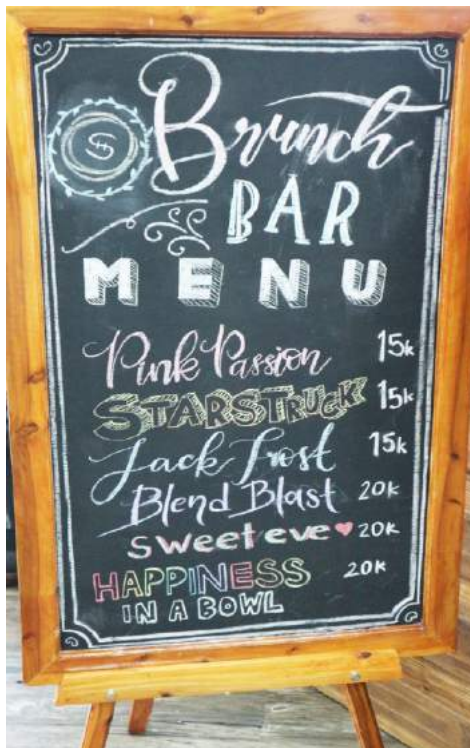 Brunch
BAR
MENU
Pink Passion 15k
STARSTRUCK 15k
Jack Frost 15k
Blend Blast 20K
sweet eve ♥ 20K
HAPPINESS 20K
IN A BOWL